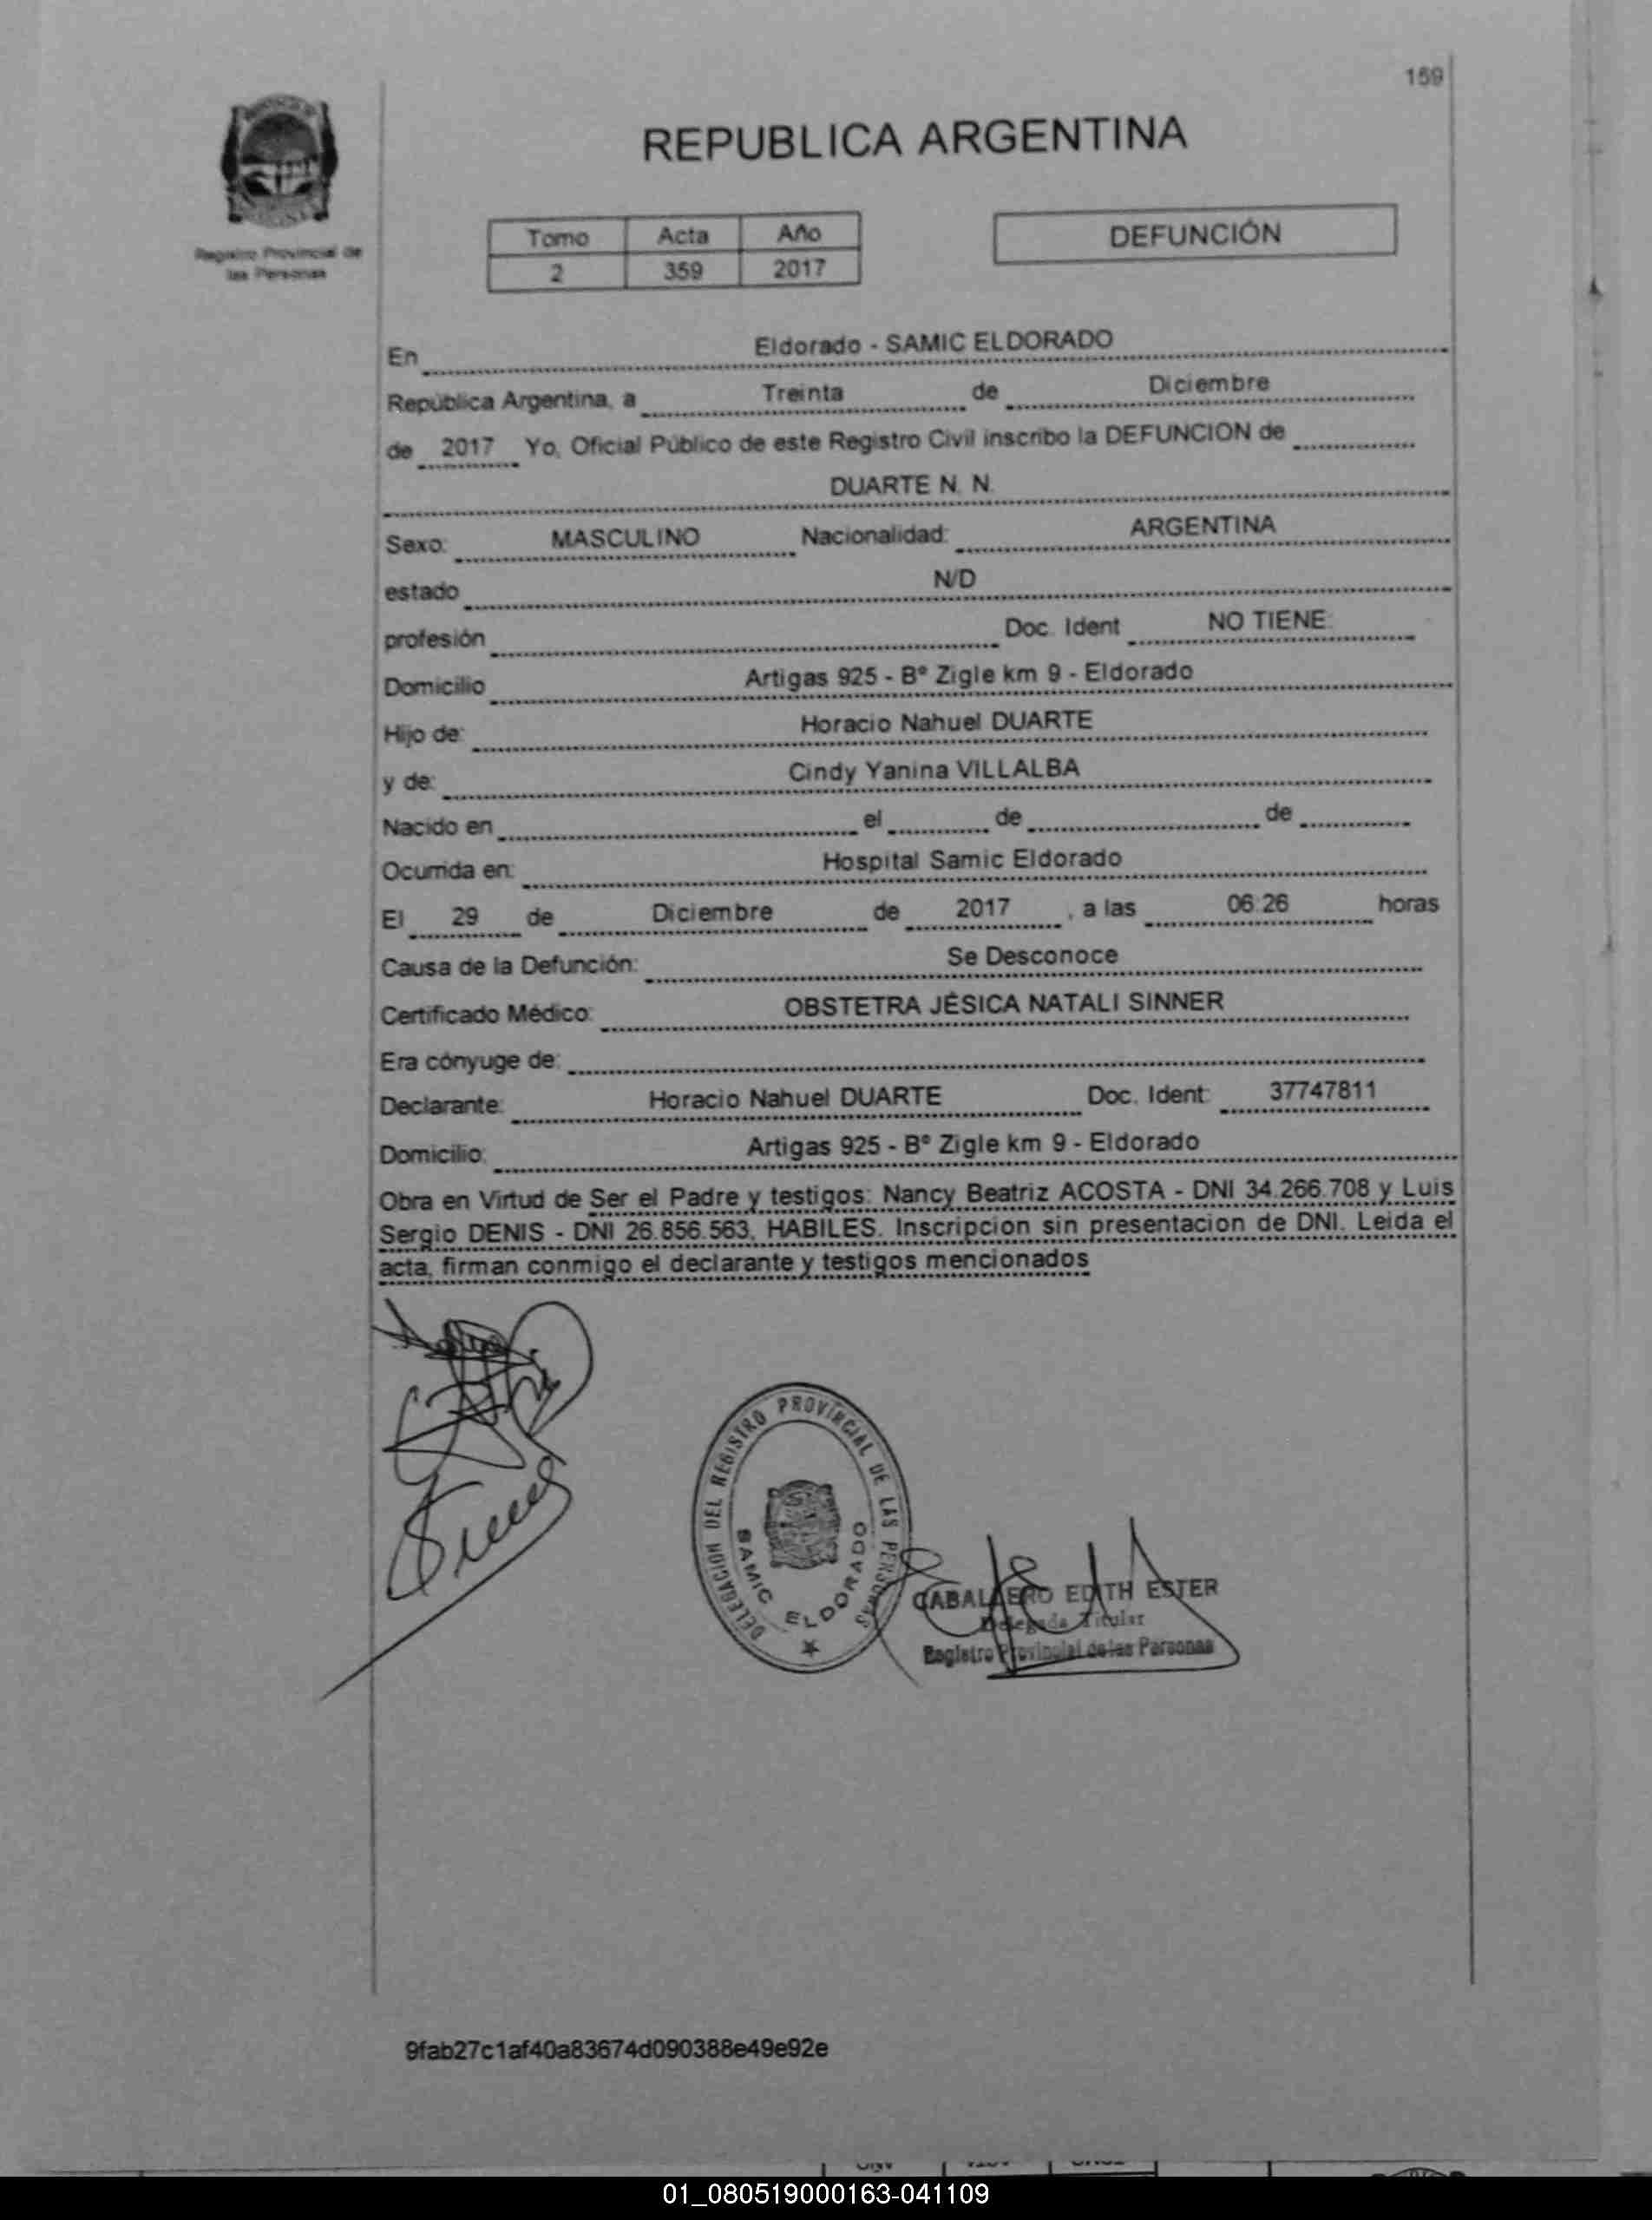 159
REPUBLICA ARGENTINA
Registro Provincial de
las Personas
Tomo Acta Año
2 359 2017
DEFUNCIÓN
En Eldorado - SAMIC ELDORADO
República Argentina, a Treinta de Diciembre
de 2017 Yo, Oficial Público de este Registro Civil inscribo la DEFUNCION de
DUARTE N. N.
Sexo: MASCULINO Nacionalidad: ARGENTINA
estado N/D
profesión Doc. Ident NO TIENE:
Domicilio Artigas 925 - Bº Zigle km 9 - Eldorado
Hijo de: Horacio Nahuel DUARTE
y de: Cindy Yanina VILLALBA
Nacido en el de de
Ocurrida en: Hospital Samic Eldorado
El 29 de Diciembre de 2017, a las 06:26 horas
Causa de la Defunción: Se Desconoce
Certificado Médico: OBSTETRA JÉSICA NATALI SINNER
Era cónyuge de:
Declarante: Horacio Nahuel DUARTE Doc. Ident: 37747811
Domicilio: Artigas 925 - Bº Zigle km 9 - Eldorado
Obra en Virtud de Ser el Padre y testigos: Nancy Beatriz ACOSTA - DNI 34.266.708 y Luis
Sergio DENIS - DNI 26.856.563, HABILES. Inscripcion sin presentacion de DNI. Leida el
acta, firman conmigo el declarante y testigos mencionados
DELEGACION DEL REGISTRO PROVINCIAL DE LAS PERSONAS
SAMIC ELDORADO
CABALLERO EDITH ESTER
Delegada Titular
Registro Provincial de las Personas
9fab27c1af40a83674d090388e49e92e
01_080519000163-041109